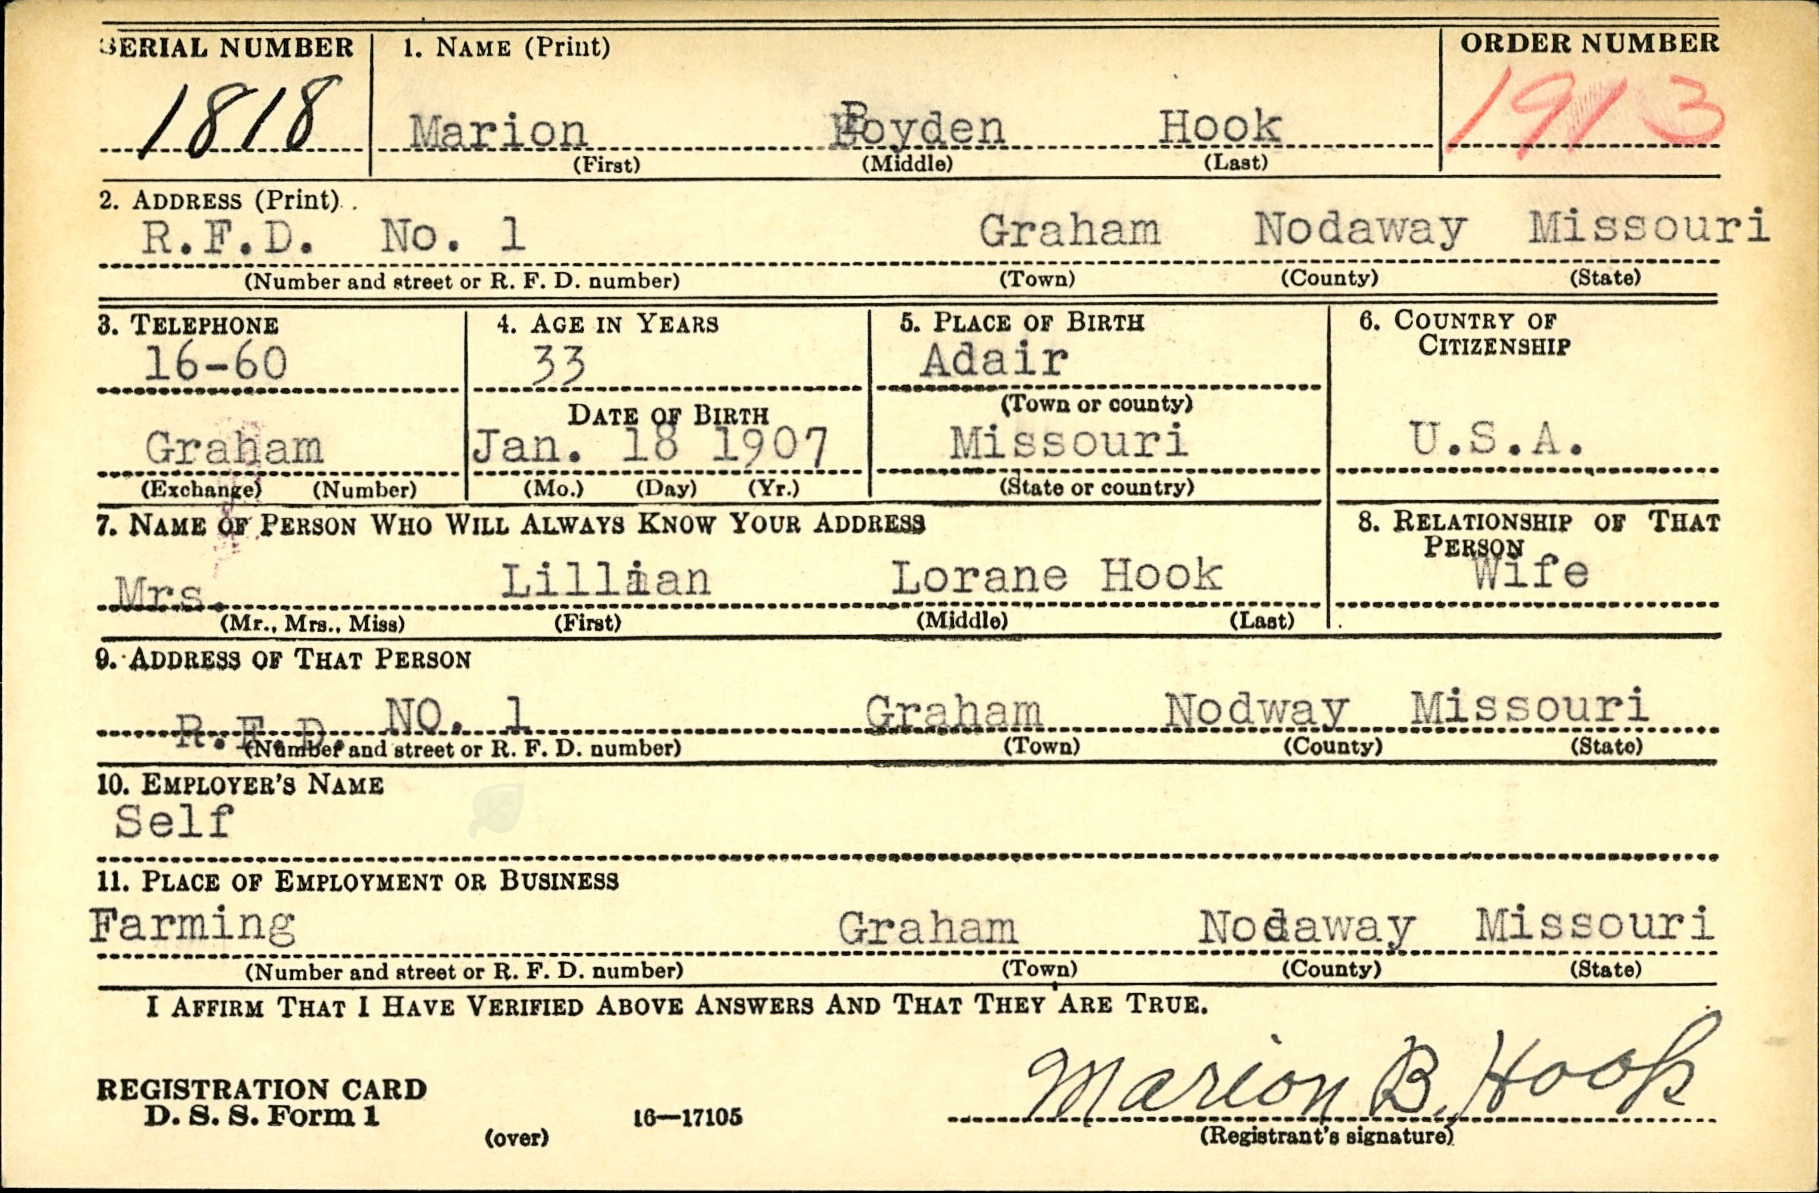 SERIAL NUMBER 1. NAME (Print) ORDER NUMBER
1818 Marion Boyden Hook 1913
(First) (Middle) (Last)
2. ADDRESS (Print)
R.F.D. No. 1 Graham Nodaway Missouri
(Number and street or R. F. D. number) (Town) (County) (State)
3. TELEPHONE 4. AGE IN YEARS 5. PLACE OF BIRTH 6. COUNTRY OF
CITIZENSHIP
16-60 33 Adair
DATE OF BIRTH (Town or county)
Graham Jan. 18 1907 Missouri U.S.A.
(Exchange) (Number) (Mo.) (Day) (Yr.) (State or country)
7. NAME OF PERSON WHO WILL ALWAYS KNOW YOUR ADDRESS 8. RELATIONSHIP OF THAT
PERSON
Mrs. Lillian Lorane Hook Wife
(Mr., Mrs., Miss) (First) (Middle) (Last)
9. ADDRESS OF THAT PERSON
R.F.D. NO. 1 Graham Nodway Missouri
(Number and street or R. F. D. number) (Town) (County) (State)
10. EMPLOYER'S NAME
Self
11. PLACE OF EMPLOYMENT OR BUSINESS
Farming Graham Nodaway Missouri
(Number and street or R. F. D. number) (Town) (County) (State)
I AFFIRM THAT I HAVE VERIFIED ABOVE ANSWERS AND THAT THEY ARE TRUE.
REGISTRATION CARD
D. S. S. Form 1 16—17105 Marion B. Hook
(over) (Registrant's signature)